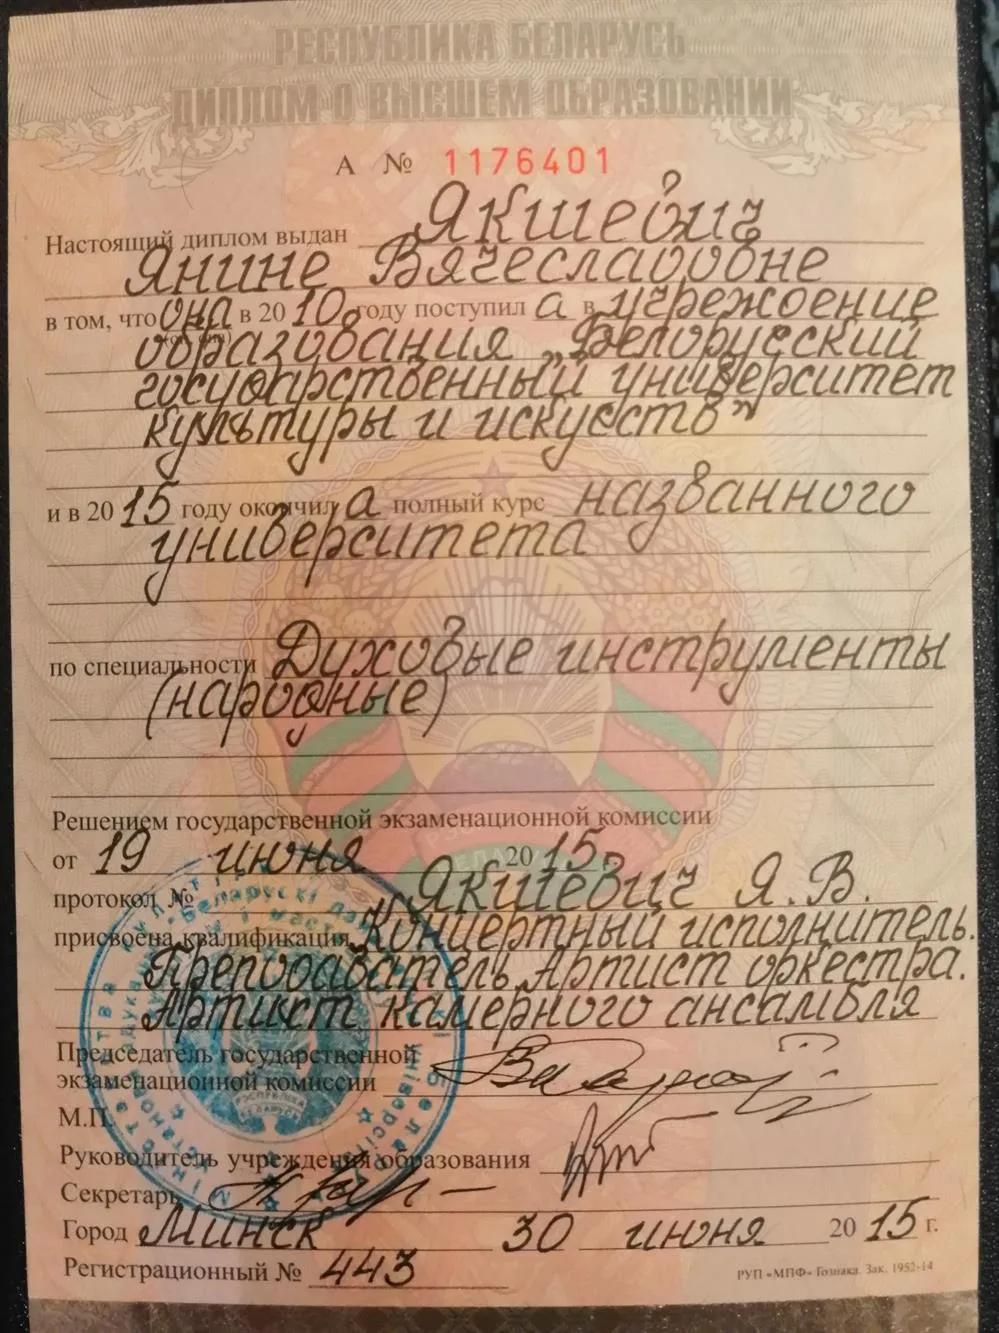 РЕСПУБЛИКА БЕЛАРУСЬ
ДИПЛОМ О ВЫСШЕМ ОБРАЗОВАНИИ
А № 1176401
Настоящий диплом выдан Якшевич
Янине Вячеславовне
в том, что она в 2010 году поступила в учреждение
образования „Белорусский
государственный университет
культуры и искусств"
и в 2015 году окончила полный курс названного
университета
по специальности Духовые инструменты
(народные)
Решением государственной экзаменационной комиссии
от 19 июня 2015 г.
протокол № Якшевич Я. В.
присвоена квалификация Концертный исполнитель.
Преподаватель. Артист оркестра.
Артист камерного ансамбля
Председатель государственной
экзаменационной комиссии
М.П.
Руководитель учреждения образования
Секретарь
Город Минск 30 июня 2015 г.
Регистрационный № 443
РУП «МПФ» Гознака. Зак. 1952-14